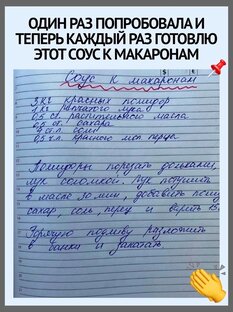 ОДИН РАЗ ПОПРОБОВАЛА И
ТЕПЕРЬ КАЖДЫЙ РАЗ ГОТОВЛЮ
ЭТОТ СОУС К МАКАРОНАМ
Соус к макаронам
3 кг красных помидор
1 кг репчатого лука
0,5 ст. растительного масла
0,5 ст. сахара
2 ст.л. соли
0,5 ч.л. красного мол. перца
Помидоры порезать дольками,
лук соломкой. Лук потушить
в масле 20 мин, добавить пом
сахар, соль, перец и варить
Горячую подливу разложить
в банки и закатать